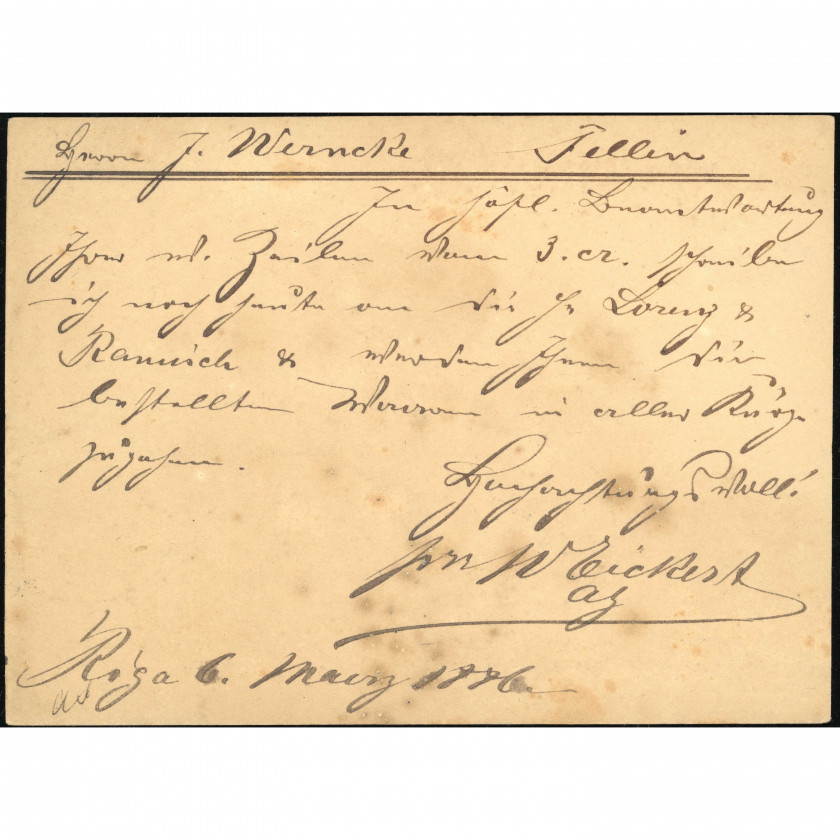 Herrn J. Werncke Fellin
In höfl. Beantwortung
Ihrer w. Zeilen vom 3. cr. schreibe
ich noch heute an die H Lorenz &
Ramisch & werden Ihnen die
bestellten Waaren in aller Kürze
zugehen.
Hochachtungsvoll!
W Eickert
Riga 6. Maerz 1886.